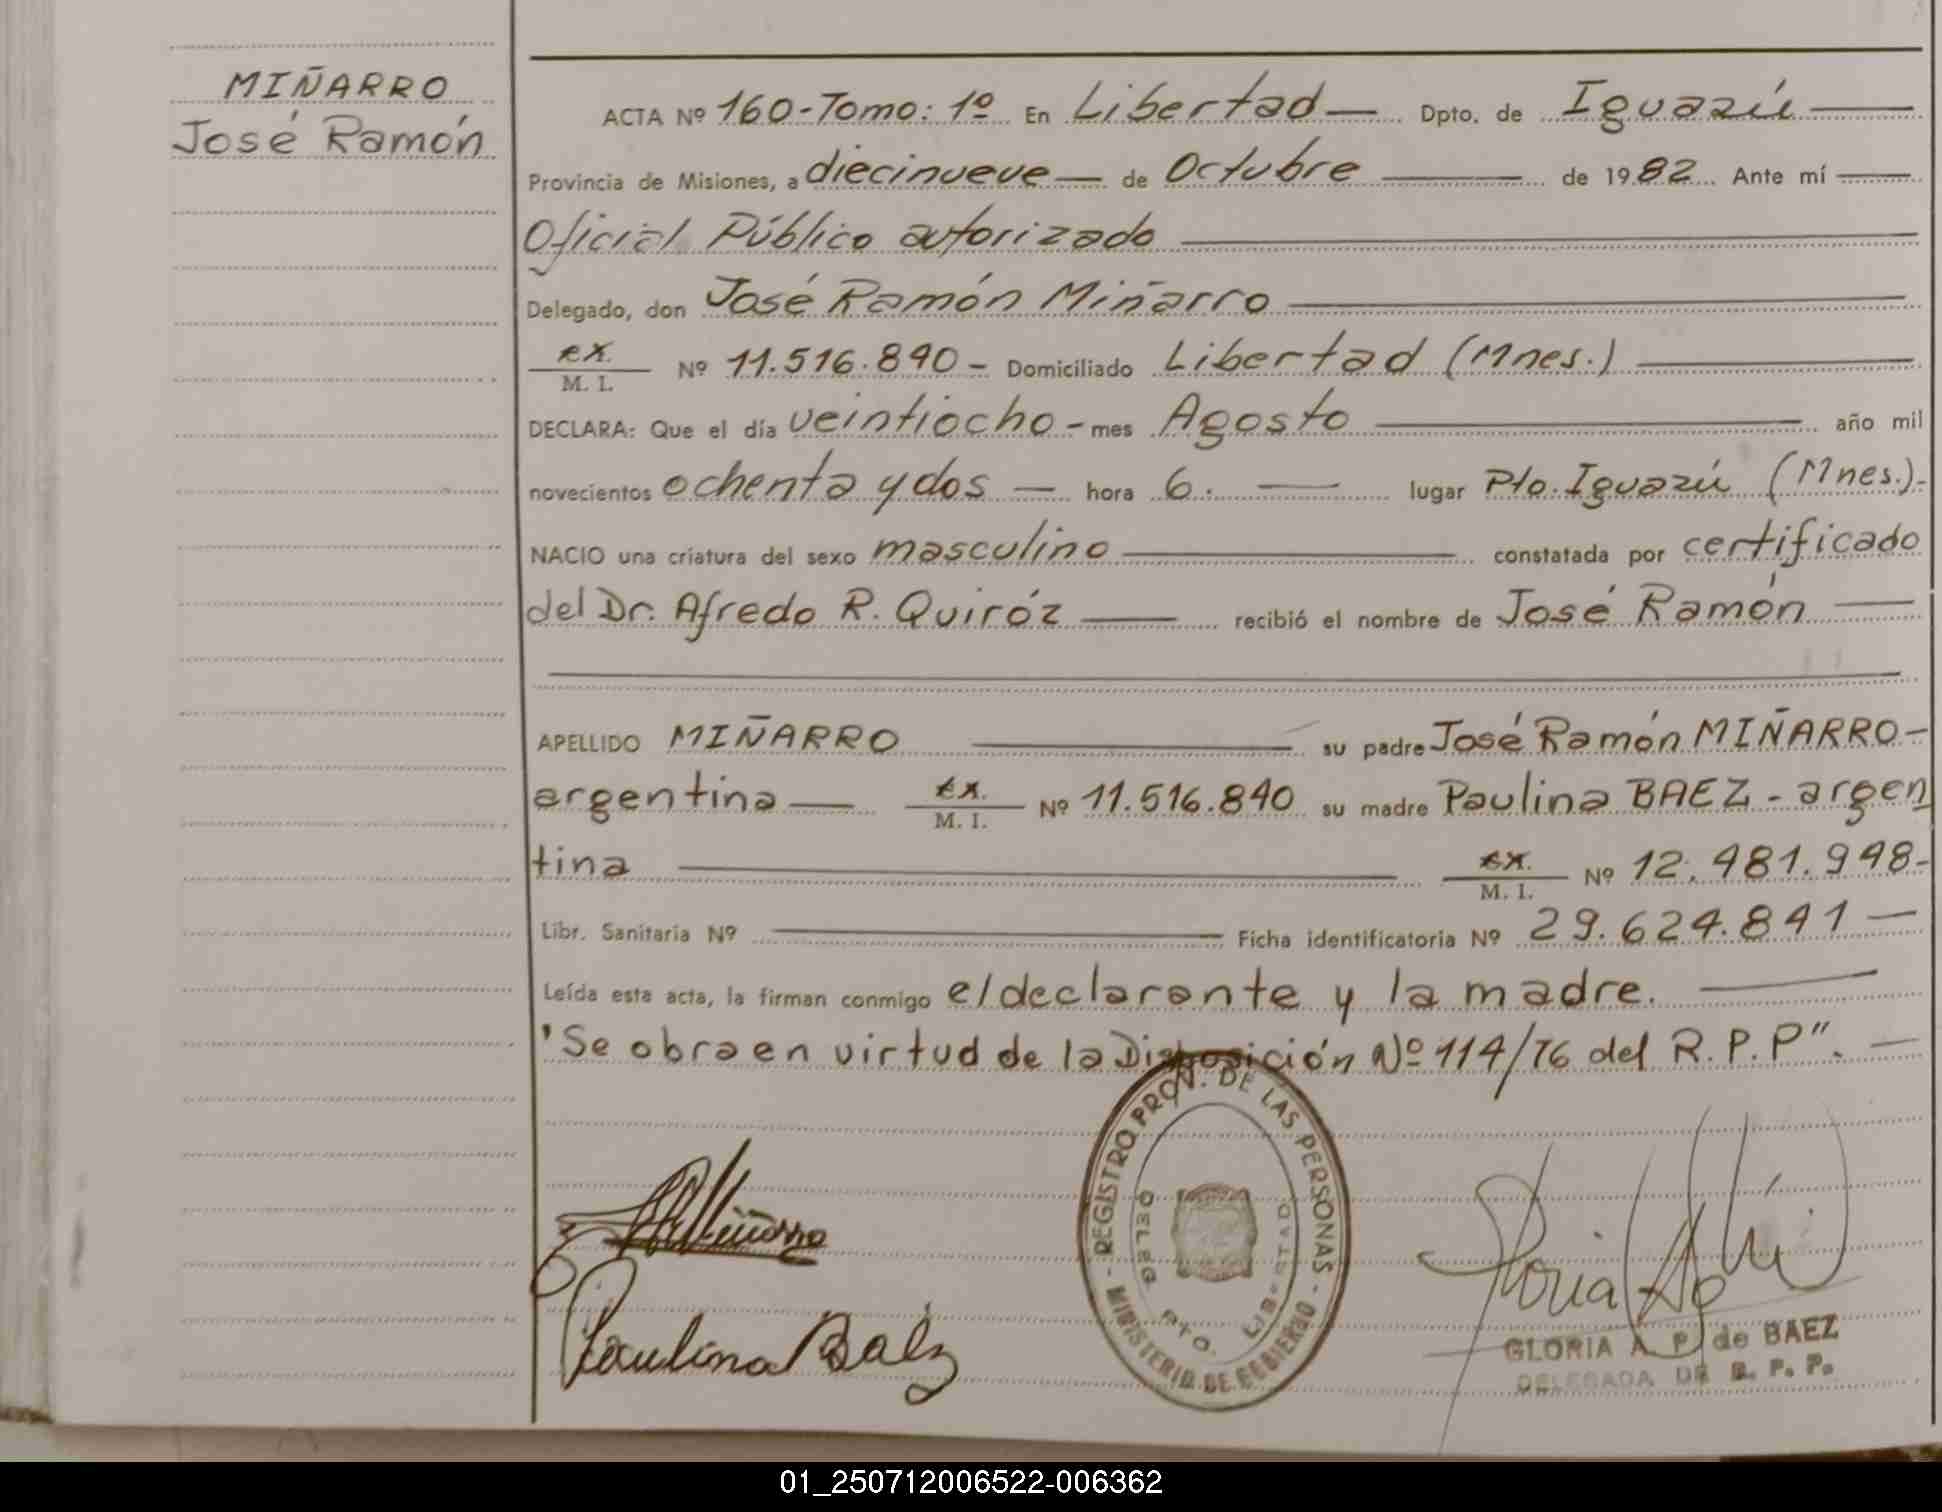 MIÑARRO
José Ramón
ACTA Nº 160-Tomo: 1º En Libertad — Dpto. de Iguazú —
Provincia de Misiones, a diecinueve — de Octubre — de 1982 Ante mí —
Oficial Público autorizado —
Delegado, don José Ramón Miñarro —
ex. M. I. Nº 11.516.840 - Domiciliado Libertad (Mnes.) —
DECLARA: Que el día veintiocho - mes Agosto — año mil
novecientos ochenta y dos — hora 6. — lugar Pto. Iguazú (Mnes.)-
NACIO una criatura del sexo masculino — constatada por certificado
del Dr. Afredo R. Quiróz — recibió el nombre de José Ramón —
APELLIDO MIÑARRO — su padre José Ramón MIÑARRO -
argentina — ex. M. I. Nº 11.516.840 su madre Paulina BAEZ - argen
tina — ex. M. I. Nº 12.481.948-
Libr. Sanitaria Nº — Ficha identificatoria Nº 29.624.841 —
Leída esta acta, la firman conmigo el declarante y la madre. —
"Se obra en virtud de la Disposición Nº 114/76 del R.P.P". —
REGISTRO PROV. DE LAS PERSONAS - MINISTERIO DE GOBIERNO -
DELEG. PTO. LIBERTAD
Miñarro
Paulina Baez
GLORIA A. P. de BAEZ
DELEGADA DE R. P. P.
01_250712006522-006362